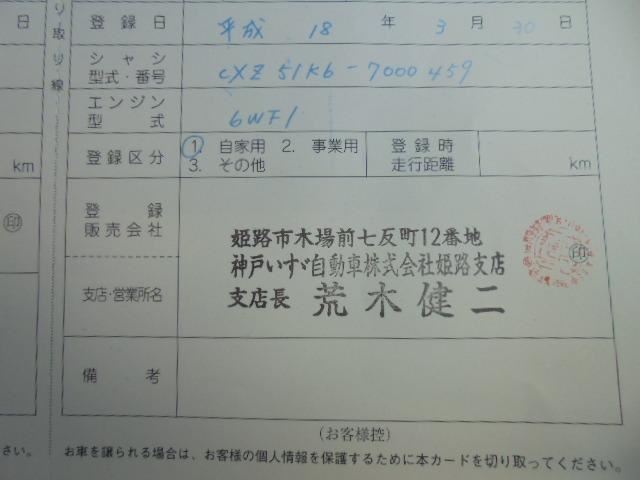 日
り取り線
登録日 平成 18 年 3 月 30 日
シャシ
型式・番号
CXZ51K6-7000459
エンジン
型式
6WF1
km
登録区分
1. 自家用 2. 事業用
3. その他
登録時
走行距離
km
印
登録
販売会社
姫路市木場前七反町12番地
神戸いすゞ自動車株式会社姫路支店
印
支店・営業所名
支店長 荒木健二
備考
(お客様控)
さい。
お車を譲られる場合は、お客様の個人情報を保護するために本カードを切り取ってください。